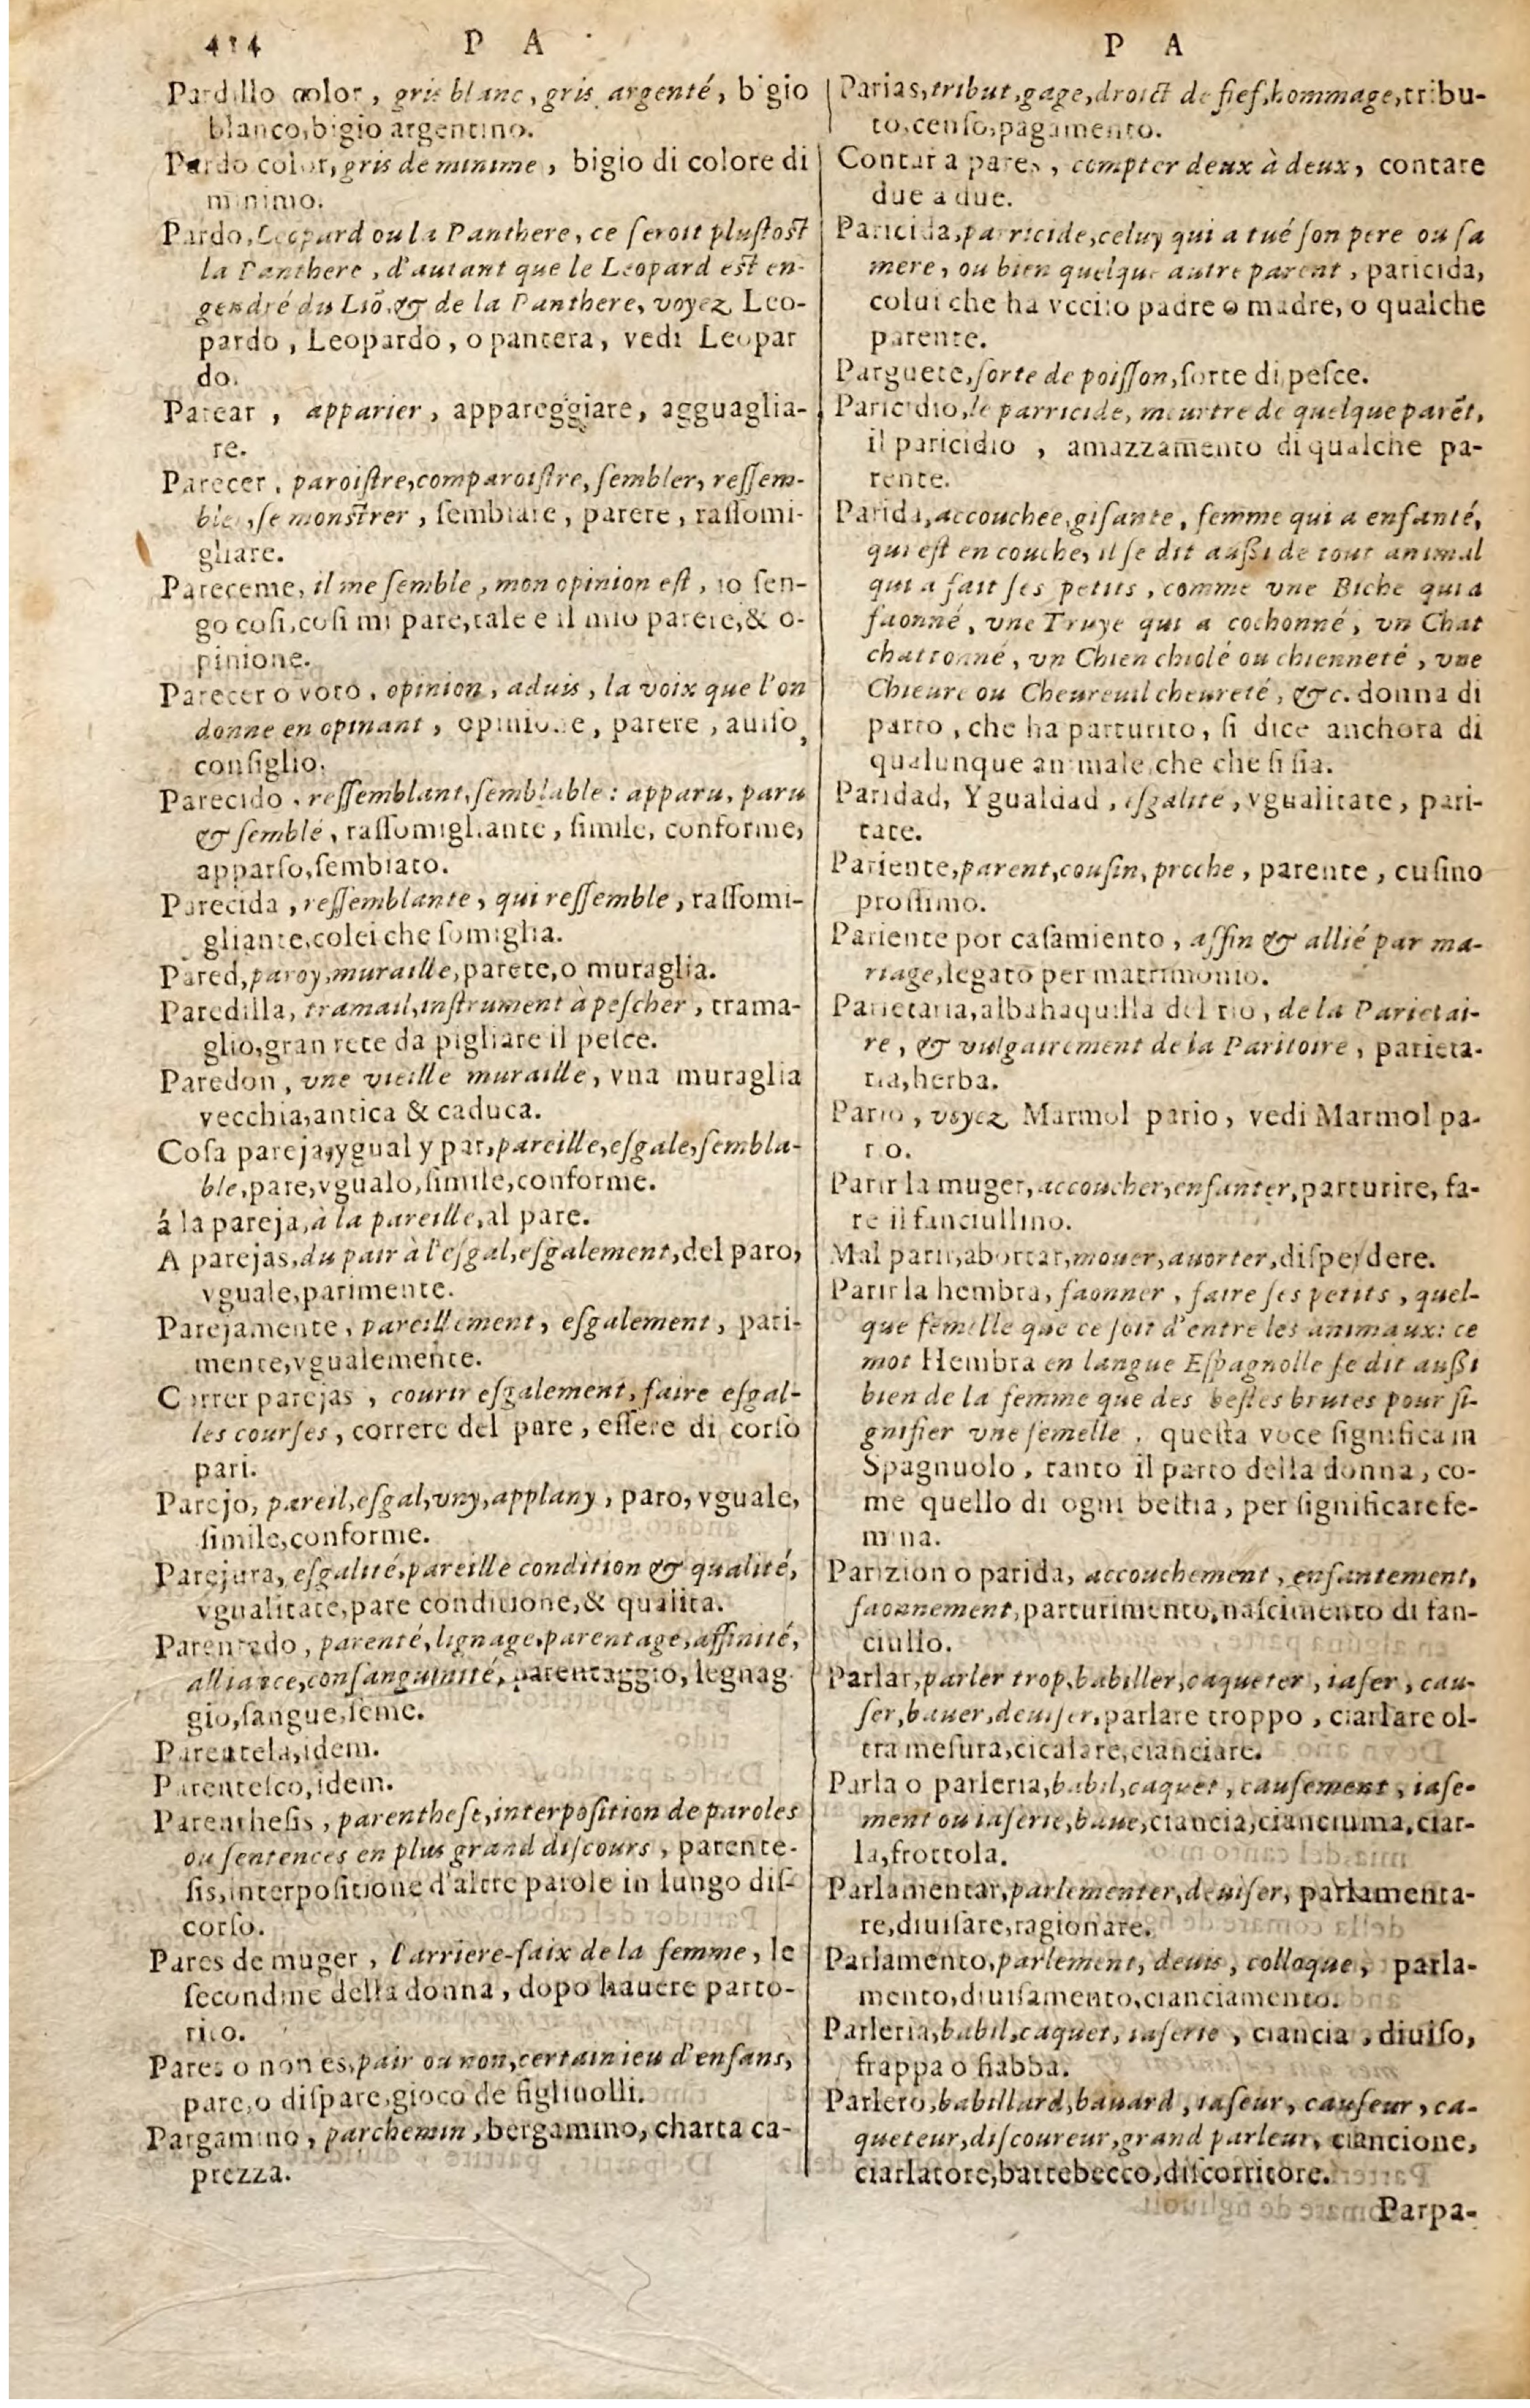 414 P A
Pardillo color, gris blanc, gris argenté, bigio
blanco, bigio argentino.
Pardo color, gris de minime, bigio di colore di
minimo.
Pardo, Leopard ou la Panthere, ce seroit plustost
la Panthere, d'autant que le Leopard est en-
gendré du Liõ, & de la Panthere, voyez Leo-
pardo, Leopardo, o pantera, vedi Leopar
do.
Parear, apparier, appareggiare, agguaglia-
re.
Parecer, paroistre, comparoistre, sembler, ressem-
bler, se monstrer, sembiare, parere, rassomi-
gliare.
Pareceme, il me semble, mon opinion est, io sen-
go cosi, cosi mi pare, tale e il mio parere, & o-
pinione.
Parecer o voto, opinion, aduis, la voix que l'on
donne en opinant, opinione, parere, auiso,
consiglio.
Parecido, ressemblant, semblable: apparu, paru
& semblé, rassomigliante, simile, conforme,
apparso, sembiato.
Parecida, ressemblante, qui ressemble, rassomi-
gliante, colei che somiglia.
Pared, paroy, muraille, parete, o muraglia.
Paredilla, tramail, instrument à pescher, trama-
glio, gran rete da pigliare il pesce.
Paredon, vne vieille muraille, vna muraglia
vecchia, antica & caduca.
Cosa pareja, ygual y par, pareille, esgale, sembla-
ble, pare, vgualo, simile, conforme.
á la pareja, à la pareille, al pare.
A parejas, du pair à l'esgal, esgalement, del paro,
vguale, parimente.
Parejamente, pareillement, esgalement, pari-
mente, vgualemente.
Correr parejas, courir esgalement, faire esgal-
les courses, correre del pare, essere di corso
pari.
Parejo, pareil, esgal, vny, applany, paro, vguale,
simile, conforme.
Parejura, esgalité, pareille condition & qualité,
vgualitate, pare conditione, & qualita.
Parentado, parenté, lignage, parentage, affinité,
alliance, consanguinité, parentaggio, legnag
gio, sangue, seme.
Parentela, idem.
Parentesco, idem.
Parenthesis, parenthese, interposition de paroles
ou sentences en plus grand discours, parente-
sis, interpositione d'altre parole in lungo dis-
corso.
Pares de muger, l'arriere-faix de la femme, le
secondine della donna, dopo hauere parto-
rito.
Pares o non es, pair ou non, certain ieu d'enfans,
pare, o dispare, gioco de figliuolli.
Pargamino, parchemin, bergamino, charta ca-
prezza.
P A
Parias, tribut, gage, droict de fief, hommage, tribu-
to, censo, pagamento.
Contar a pares, compter deux à deux, contare
due a due.
Paricida, parricide, celuy qui a tué son pere ou sa
mere, ou bien quelque autre parent, paricida,
colui che ha vcciso padre o madre, o qualche
parente.
Parguete, sorte de poisson, sorte di pesce.
Paricidio, le parricide, meurtre de quelque parẽt,
il paricidio, amazzamento di qualche pa-
rente.
Parida, accouchee, gisante, femme qui a enfanté,
qui est en couche, il se dit aussi de tout animal
qui a fait ses petits, comme vne Biche qui a
faonné, vne Truye qui a cochonné, vn Chat
chattonné, vn Chien chiolé ou chienneté, vne
Chieure ou Cheureuil cheureté, &c. donna di
parto, che ha parturito, si dice anchora di
qualunque animale che che si sia.
Paridad, Ygualdad, esgalité, vgualitate, pari-
tate.
Pariente, parent, cousin, proche, parente, cusino
prossimo.
Pariente por casamiento, affin & allié par ma-
riage, legato per matrimonio.
Parietaria, albahaquilla del rio, de la Parietai-
re, & vulgairement de la Paritoire, parieta-
ria, herba.
Pario, voyez Marmol pario, vedi Marmol pa-
rio.
Parir la muger, accoucher, enfanter, parturire, fa-
re il fanciullino.
Mal parir, abortar, mouer, auorter, disperdere.
Parir la hembra, faonner, faire ses petits, quel-
que femelle que ce soit d'entre les animaux: ce
mot Hembra en langue Espagnolle se dit aussi
bien de la femme que des bestes brutes pour si-
gnifier vne femelle, questa voce significa in
Spagnuolo, tanto il parto della donna, co-
me quello di ogni bestia, per significare fe-
mina.
Parizion o parida, accouchement, enfantement,
faonnement, parturimento, nascimento di fan-
ciullo.
Parlar, parler trop, babiller, caqueter, iaser, cau-
ser, bauer, deuiser, parlare troppo, ciarlare ol-
tra mesura, cicalare, cianciare.
Parla o parleria, babil, caquet, causement, iase-
ment ou iaserie, baue, ciancia, cianciuma, ciar-
la, frottola.
Parlamentar, parlementer, deuiser, parlamenta-
re, diuisare, ragionare.
Parlamento, parlement, deuis, colloque, parla-
mento, diuisamento, cianciamento.
Parleria, babil, caquet, iaserie, ciancia, diuiso,
frappa o fiabba.
Parlero, babillard, bauard, iaseur, causeur, ca-
queteur, discoureur, grand parleur, ciancione,
ciarlatore, battebecco, discorritore.
Parpa-